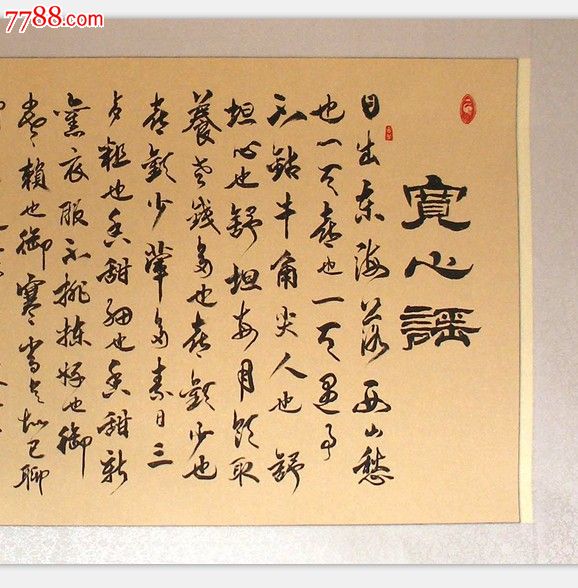 7788.com
寬心謠
日出东海落西山愁
也一天喜也一天遇事
不鉆牛角尖人也舒
坦心也舒坦每月领取
養老錢多也喜歡少也
喜歡少葷多素日三
餐粗也香甜細也香甜新
舊衣服不挑揀好也御
寒賴也御寒常与知己聊